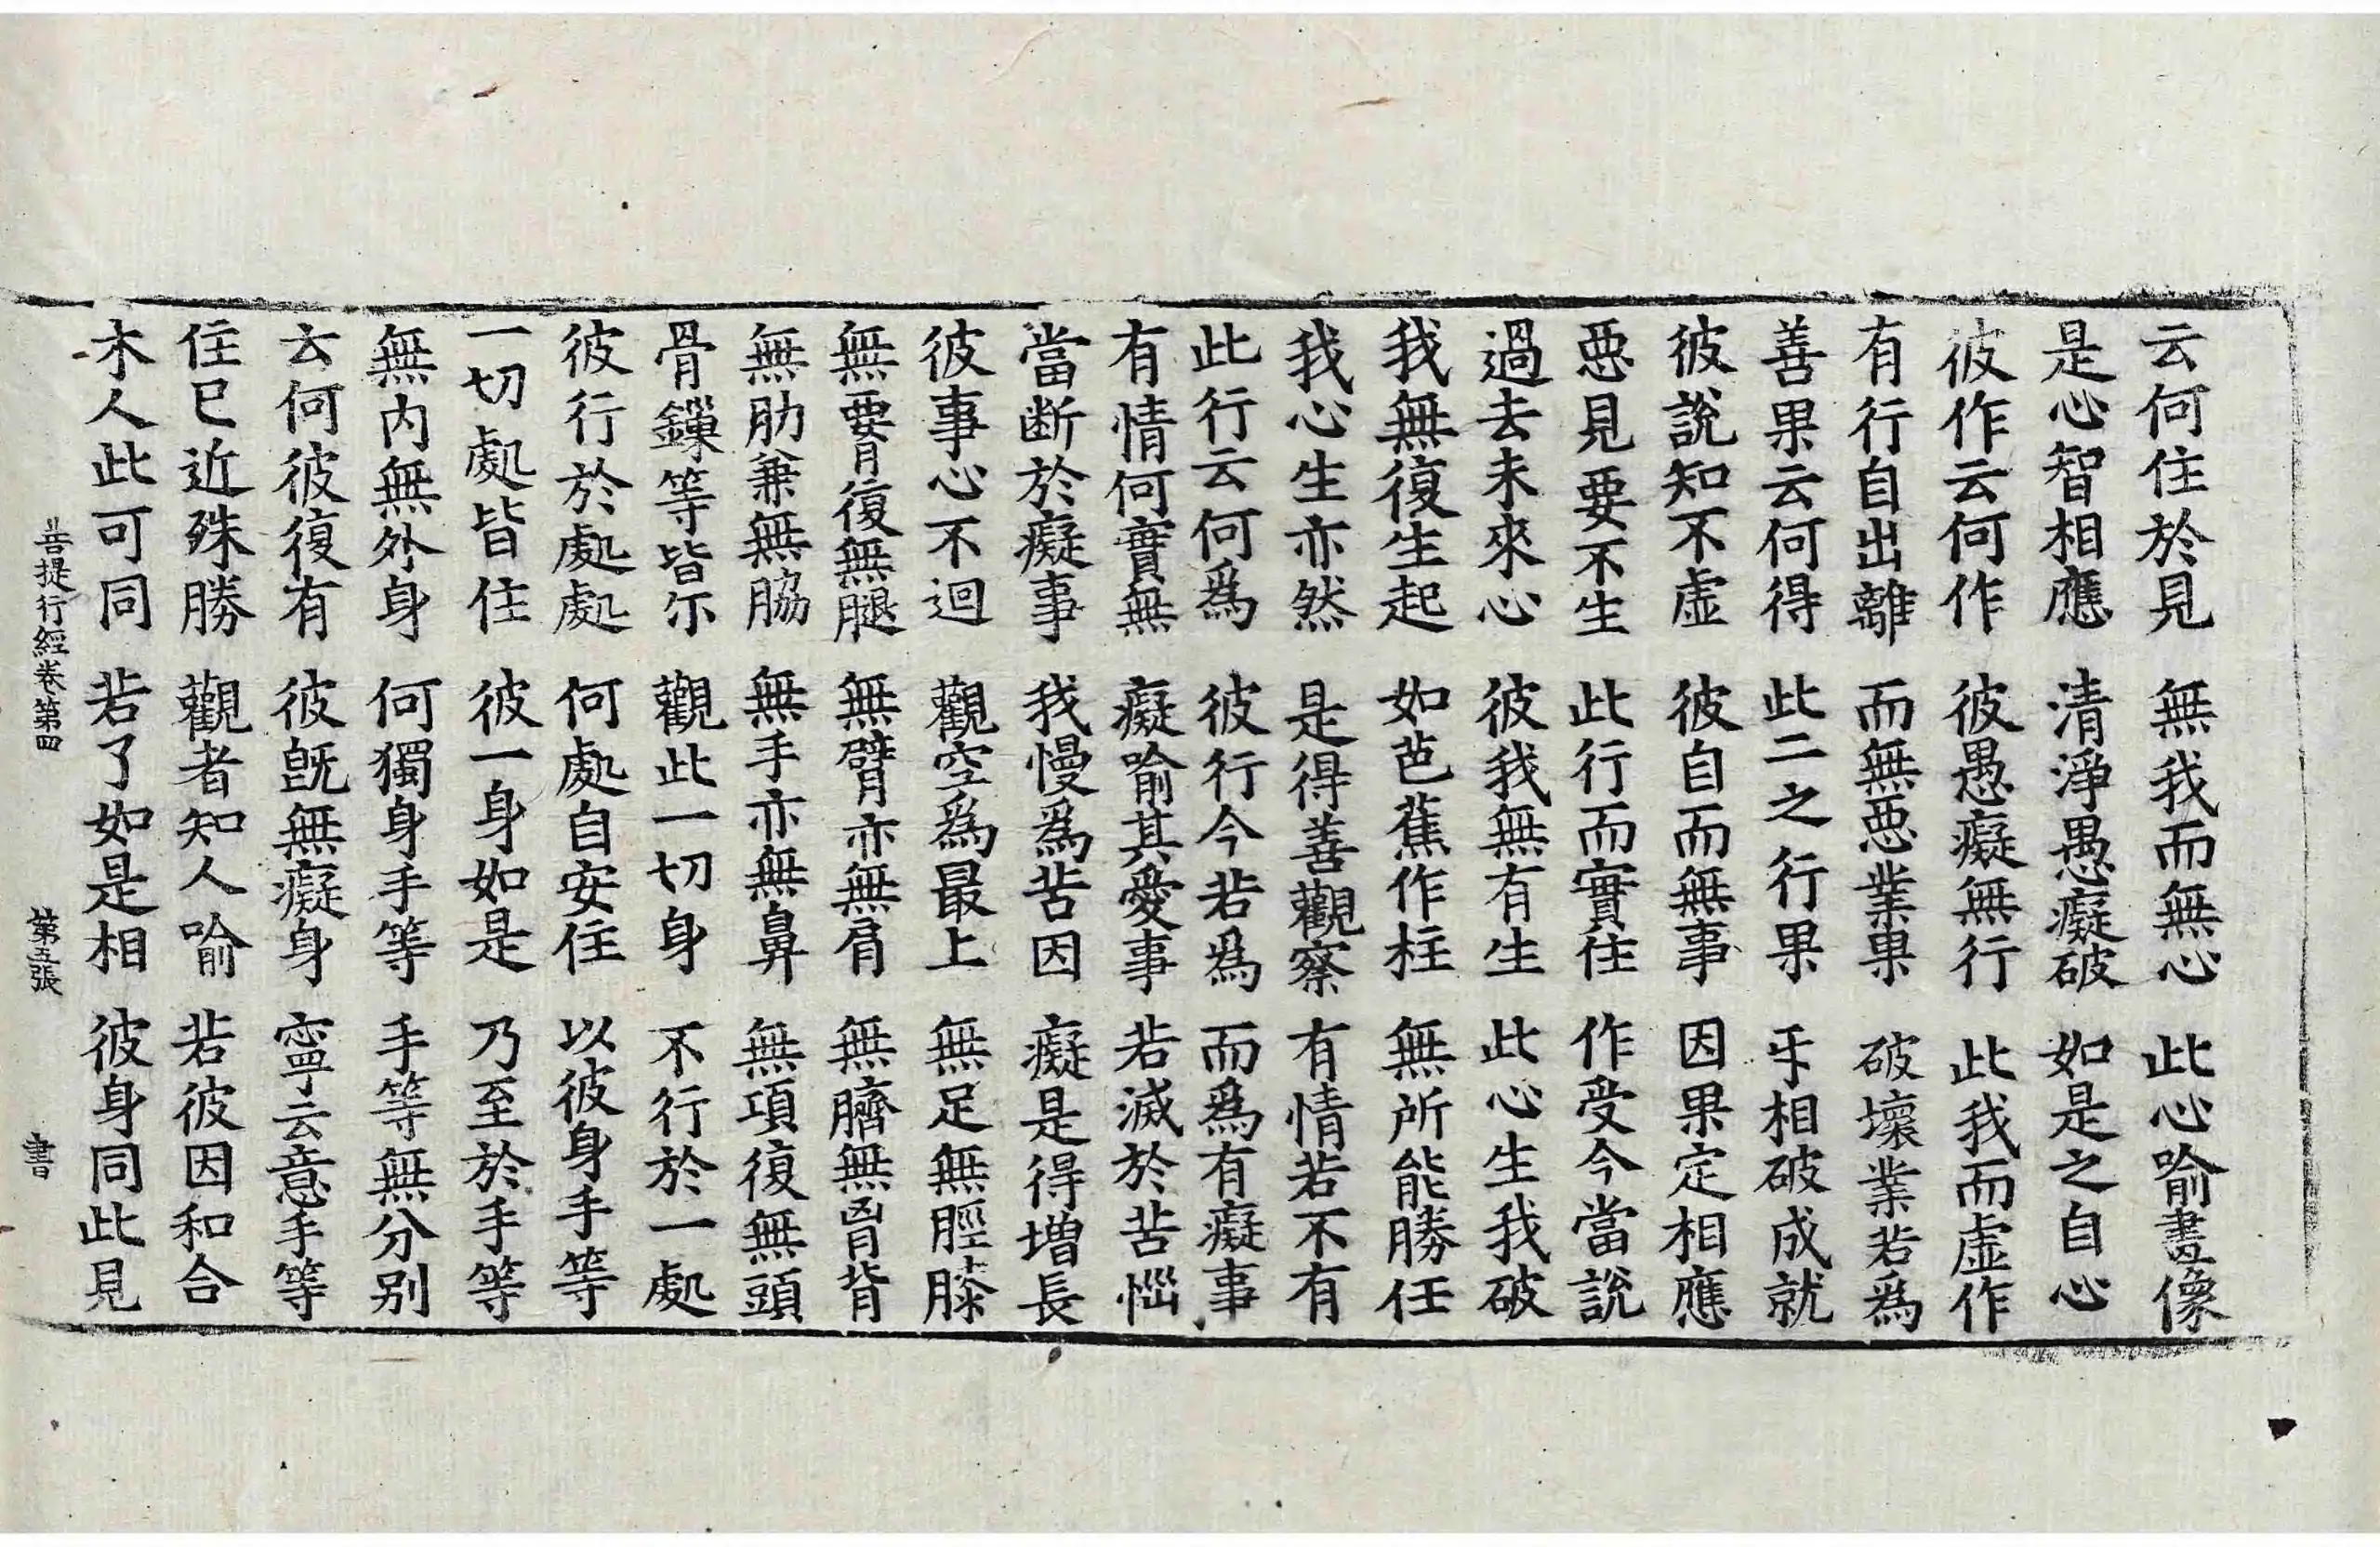 云何住於見 無我而無心 此心喻畫像
是心智相應 清淨愚癡破 如是之自心
彼作云何作 彼愚癡無行 此我而虛作
有行自出離 而無惡業果 破壞業若爲
善果云何得 此二之行果 乎相破成就
彼說知不虛 彼自而無事 因果定相應
惡見要不生 此行而實住 作受今當說
過去未來心 彼我無有生 此心生我破
我無復生起 如芭蕉作柱 無所能勝任
我心生亦然 是得善觀察 有情若不有
此行云何爲 彼行今若爲 而爲有癡事
有情何實無 癡喻其愛事 若滅於苦惱
當断於癡事 我慢爲苦因 癡是得增長
彼事心不迴 觀空爲最上 無足無脛膝
無要復無腿 無臂亦無肩 無臍無胷背
無肋兼無脇 無手亦無鼻 無項復無頭
骨鏁等皆尔 觀此一切身 不行於一處
彼行於處處 何處自安住 以彼身手等
一切處皆住 彼一身如是 乃至於手等
無內無外身 何獨身手等 手等無分别
云何彼復有 彼旣無癡身 寧云意手等
住已近殊勝 觀者知人喻 若彼因和合
木人此可同 若了如是相 彼身同此見
菩提行經卷第四 第五張 書